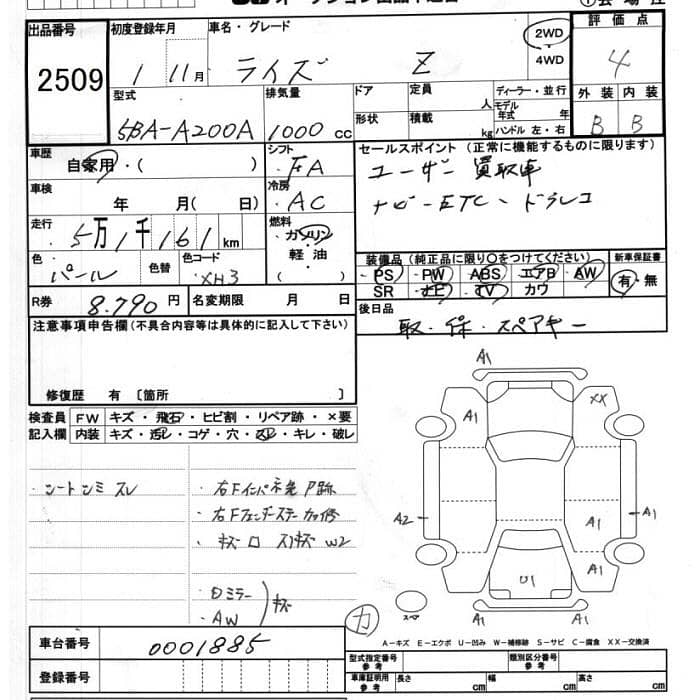 出品番号
2509
初度登録年月
1 11月
車名・グレード
ライズ Z
2WD
4WD
評価点
4
型式
5BA-A200A
排気量
1000 cc
ドア
形状
定員
人
積載
kg
ディーラー・並行
モデル
年式 年
ハンドル 左・右
外装 内装
B B
車歴
自家用・( )
シフト
FA
セールスポイント (正常に機能するものに限ります)
ユーザー買取車
ナビ-ETC-ドラレコ
車検
年 月( 日)
冷房
AC
走行
5万1千161km
燃料
ガソリン
軽・油
( )
色
パール
色替
色コード
XH3
装備品 (純正品に限り○をつけてください)
PS PW ABS エアB AW
SR ナビ TV カワ
新車保証書
有・無
R券 8.790円
名変期限 月 日
後日品
取・保・スペアキー
注意事項申告欄(不具合内容等は具体的に記入して下さい)
修復歴 有 〔箇所 〕
検査員
記入欄
FW キズ・飛石・ヒビ割・リペア跡・×要
内装 キズ・汚レ・コゲ・穴・スレ・キレ・破レ
・シートシミ スレ
・右Fインパネ先P跡
・右Fフェンダーステー加修
・キズ 凹 スリキズ W2
・Dミラー
・AW
キズ
A1
A1
XX
A2
A1
A1
A1
U1
A1
A1
スペア
カ
A-キズ E-エクボ U-凹み W-補修跡 S-サビ C-腐食 XX-交換済
車台番号
0001885
登録番号
型式指定番号
参考
類別区分番号
参考
車庫証明用
参考
長さ cm
幅 cm
高さ cm